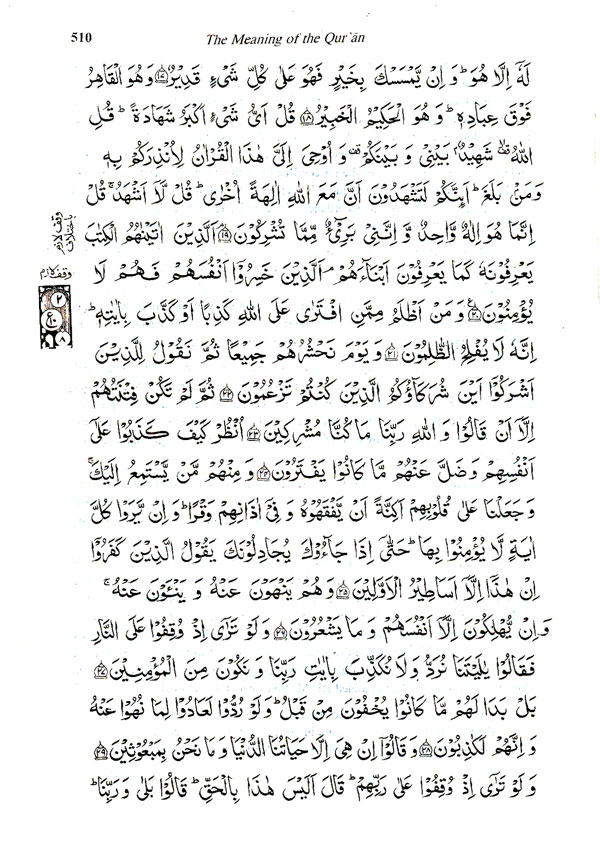 510
The Meaning of the Qur'ān
لَهٗۤ اِلَّا هُوَ ؕ وَ اِنْ یَّمْسَسْكَ بِخَیْرٍ فَهُوَ عَلٰی كُلِّ شَیْءٍ قَدِیْرٌ ﴿۱۷﴾ وَ هُوَ الْقَاهِرُ
فَوْقَ عِبَادِهٖ ؕ وَ هُوَ الْحَكِیْمُ الْخَبِیْرُ ﴿۱۸﴾ قُلْ اَیُّ شَیْءٍ اَكْبَرُ شَهَادَةً ؕ قُلِ
اللّٰهُ ۟ۙ شَهِیْدٌۢ بَیْنِیْ وَ بَیْنَكُمْ ۟ وَ اُوْحِیَ اِلَیَّ هٰذَا الْقُرْاٰنُ لِاُنْذِرَكُمْ بِهٖ
وَ مَنْۢ بَلَغَ ؕ اَئِنَّكُمْ لَتَشْهَدُوْنَ اَنَّ مَعَ اللّٰهِ اٰلِهَةً اُخْرٰی ؕ قُلْ لَّاۤ اَشْهَدُ ۚ قُلْ
اِنَّمَا هُوَ اِلٰهٌ وَّاحِدٌ وَّ اِنَّنِیْ بَرِیْٓءٌ مِّمَّا تُشْرِكُوْنَ ﴿۱۹﴾ اَلَّذِیْنَ اٰتَیْنٰهُمُ الْكِتٰبَ
یَعْرِفُوْنَهٗ كَمَا یَعْرِفُوْنَ اَبْنَآءَهُمْ ۘ اَلَّذِیْنَ خَسِرُوْۤا اَنْفُسَهُمْ فَهُمْ لَا
یُؤْمِنُوْنَ ﴿۲۰﴾ وَ مَنْ اَظْلَمُ مِمَّنِ افْتَرٰی عَلَی اللّٰهِ كَذِبًا اَوْ كَذَّبَ بِاٰیٰتِهٖ ؕ
اِنَّهٗ لَا یُفْلِحُ الظّٰلِمُوْنَ ﴿۲۱﴾ وَ یَوْمَ نَحْشُرُهُمْ جَمِیْعًا ثُمَّ نَقُوْلُ لِلَّذِیْنَ
اَشْرَكُوْۤا اَیْنَ شُرَكَآؤُكُمُ الَّذِیْنَ كُنْتُمْ تَزْعُمُوْنَ ﴿۲۲﴾ ثُمَّ لَمْ تَكُنْ فِتْنَتُهُمْ
اِلَّاۤ اَنْ قَالُوْا وَ اللّٰهِ رَبِّنَا مَا كُنَّا مُشْرِكِیْنَ ﴿۲۳﴾ اُنْظُرْ كَیْفَ كَذَبُوْا عَلٰۤی
اَنْفُسِهِمْ وَ ضَلَّ عَنْهُمْ مَّا كَانُوْا یَفْتَرُوْنَ ﴿۲۴﴾ وَ مِنْهُمْ مَّنْ یَّسْتَمِعُ اِلَیْكَ ۚ
وَ جَعَلْنَا عَلٰی قُلُوْبِهِمْ اَكِنَّةً اَنْ یَّفْقَهُوْهُ وَ فِیْۤ اٰذَانِهِمْ وَقْرًا ؕ وَ اِنْ یَّرَوْا كُلَّ
اٰیَةٍ لَّا یُؤْمِنُوْا بِهَا ؕ حَتّٰۤی اِذَا جَآءُوْكَ یُجَادِلُوْنَكَ یَقُوْلُ الَّذِیْنَ كَفَرُوْۤا
اِنْ هٰذَاۤ اِلَّاۤ اَسَاطِیْرُ الْاَوَّلِیْنَ ﴿۲۵﴾ وَ هُمْ یَنْهَوْنَ عَنْهُ وَ یَنْـَٔوْنَ عَنْهُ ۚ
وَ اِنْ یُّهْلِكُوْنَ اِلَّاۤ اَنْفُسَهُمْ وَ مَا یَشْعُرُوْنَ ﴿۲۶﴾ وَ لَوْ تَرٰۤی اِذْ وُقِفُوْا عَلَی النَّارِ
فَقَالُوْا یٰلَیْتَنَا نُرَدُّ وَ لَا نُكَذِّبَ بِاٰیٰتِ رَبِّنَا وَ نَكُوْنَ مِنَ الْمُؤْمِنِیْنَ ﴿۲۷﴾
بَلْ بَدَا لَهُمْ مَّا كَانُوْا یُخْفُوْنَ مِنْ قَبْلُ ؕ وَ لَوْ رُدُّوْا لَعَادُوْا لِمَا نُهُوْا عَنْهُ
وَ اِنَّهُمْ لَكٰذِبُوْنَ ﴿۲۸﴾ وَ قَالُوْۤا اِنْ هِیَ اِلَّا حَیَاتُنَا الدُّنْیَا وَ مَا نَحْنُ بِمَبْعُوْثِیْنَ ﴿۲۹﴾
وَ لَوْ تَرٰۤی اِذْ وُقِفُوْا عَلٰی رَبِّهِمْ ؕ قَالَ اَلَیْسَ هٰذَا بِالْحَقِّ ؕ قَالُوْا بَلٰی وَ رَبِّنَا ؕ
وقف لازم
باختلاف
وقف لازم
۲
ع
۱۰
۸